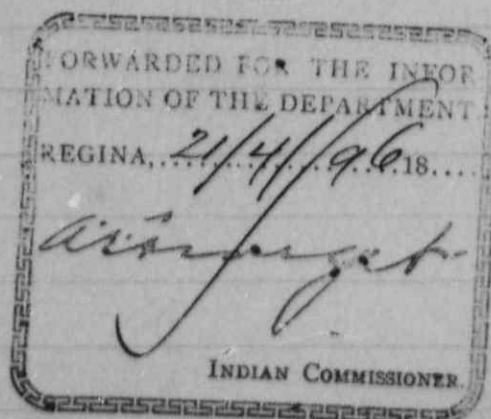 FORWARDED FOR THE INFOR
MATION OF THE DEPARTMENT
REGINA, 21/4/96 18....
INDIAN COMMISSIONER.